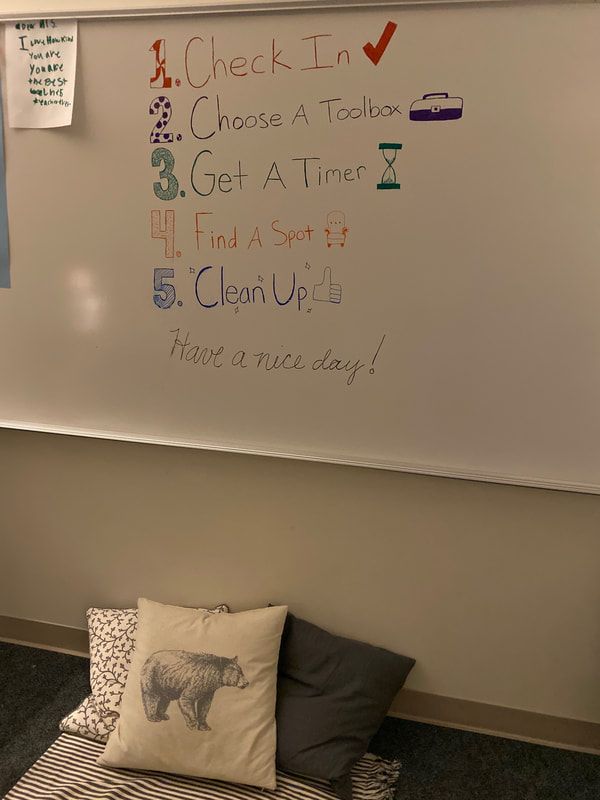 I Love How Kind
you are
you are
the Best
teacher
1. Check In
2. Choose A Toolbox
3. Get A Timer
4. Find A Spot
5. Clean Up
Have a nice day!